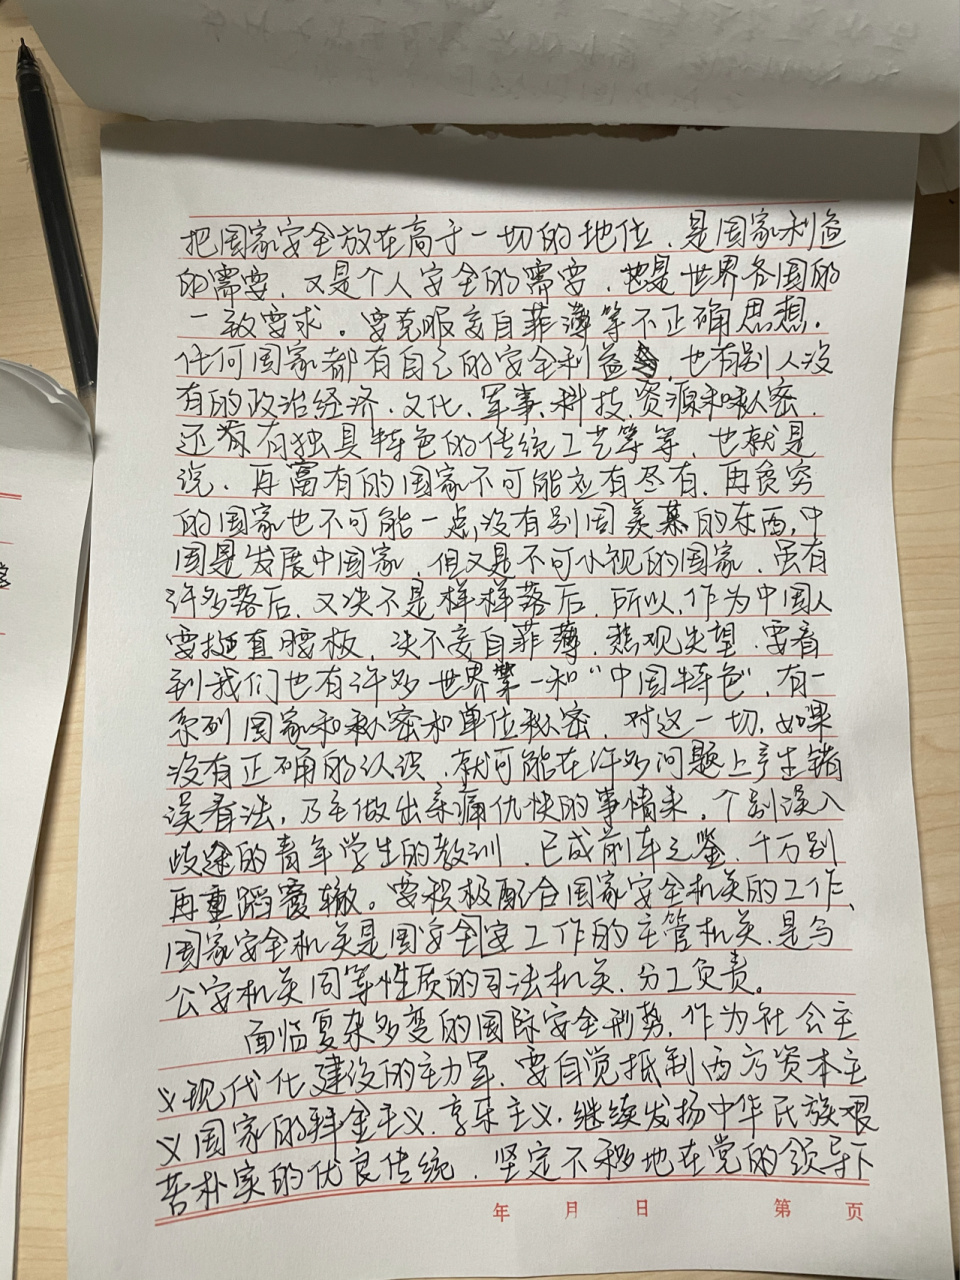 把国家安全放在高于一切的地位,是国家利益
的需要,又是个人安全的需要,也是世界各国的
一致要求。要克服妄自菲薄等不正确思想。
任何国家都有自己的安全利益,也有别人没
有的政治经济、文化、军事、科技、资源和秘密,
还有独具特色的传统工艺等等,也就是
说,再富有的国家不可能应有尽有,再贫穷
的国家也不可能一点没有别国羡慕的东西,中
国是发展中国家,但又是不可小视的国家,虽有
许多落后,又决不是样样落后,所以,作为中国人
要挺直腰板,决不妄自菲薄,悲观失望,要看
到我们也有许多世界第一和“中国特色”,有一
系列国家和秘密和单位秘密,对这一切,如果
没有正确的认识,就可能在许多问题上产生错
误看法,乃至做出亲痛仇快的事情来,个别误入
歧途的青年学生的教训,已成前车之鉴,千万别
再重蹈覆辙。要积极配合国家安全机关的工作、
国家安全机关是国安全工作的主管机关,是与
公安机关同等性质的司法机关,分工负责。
面临复杂多变的国际安全形势,作为社会主
义现代化建设的主力军,要自觉抵制西方资本主
义国家的拜金主义、享乐主义,继续发扬中华民族艰
苦朴实的优良传统,坚定不移地在党的领导下
年 月 日 第 页